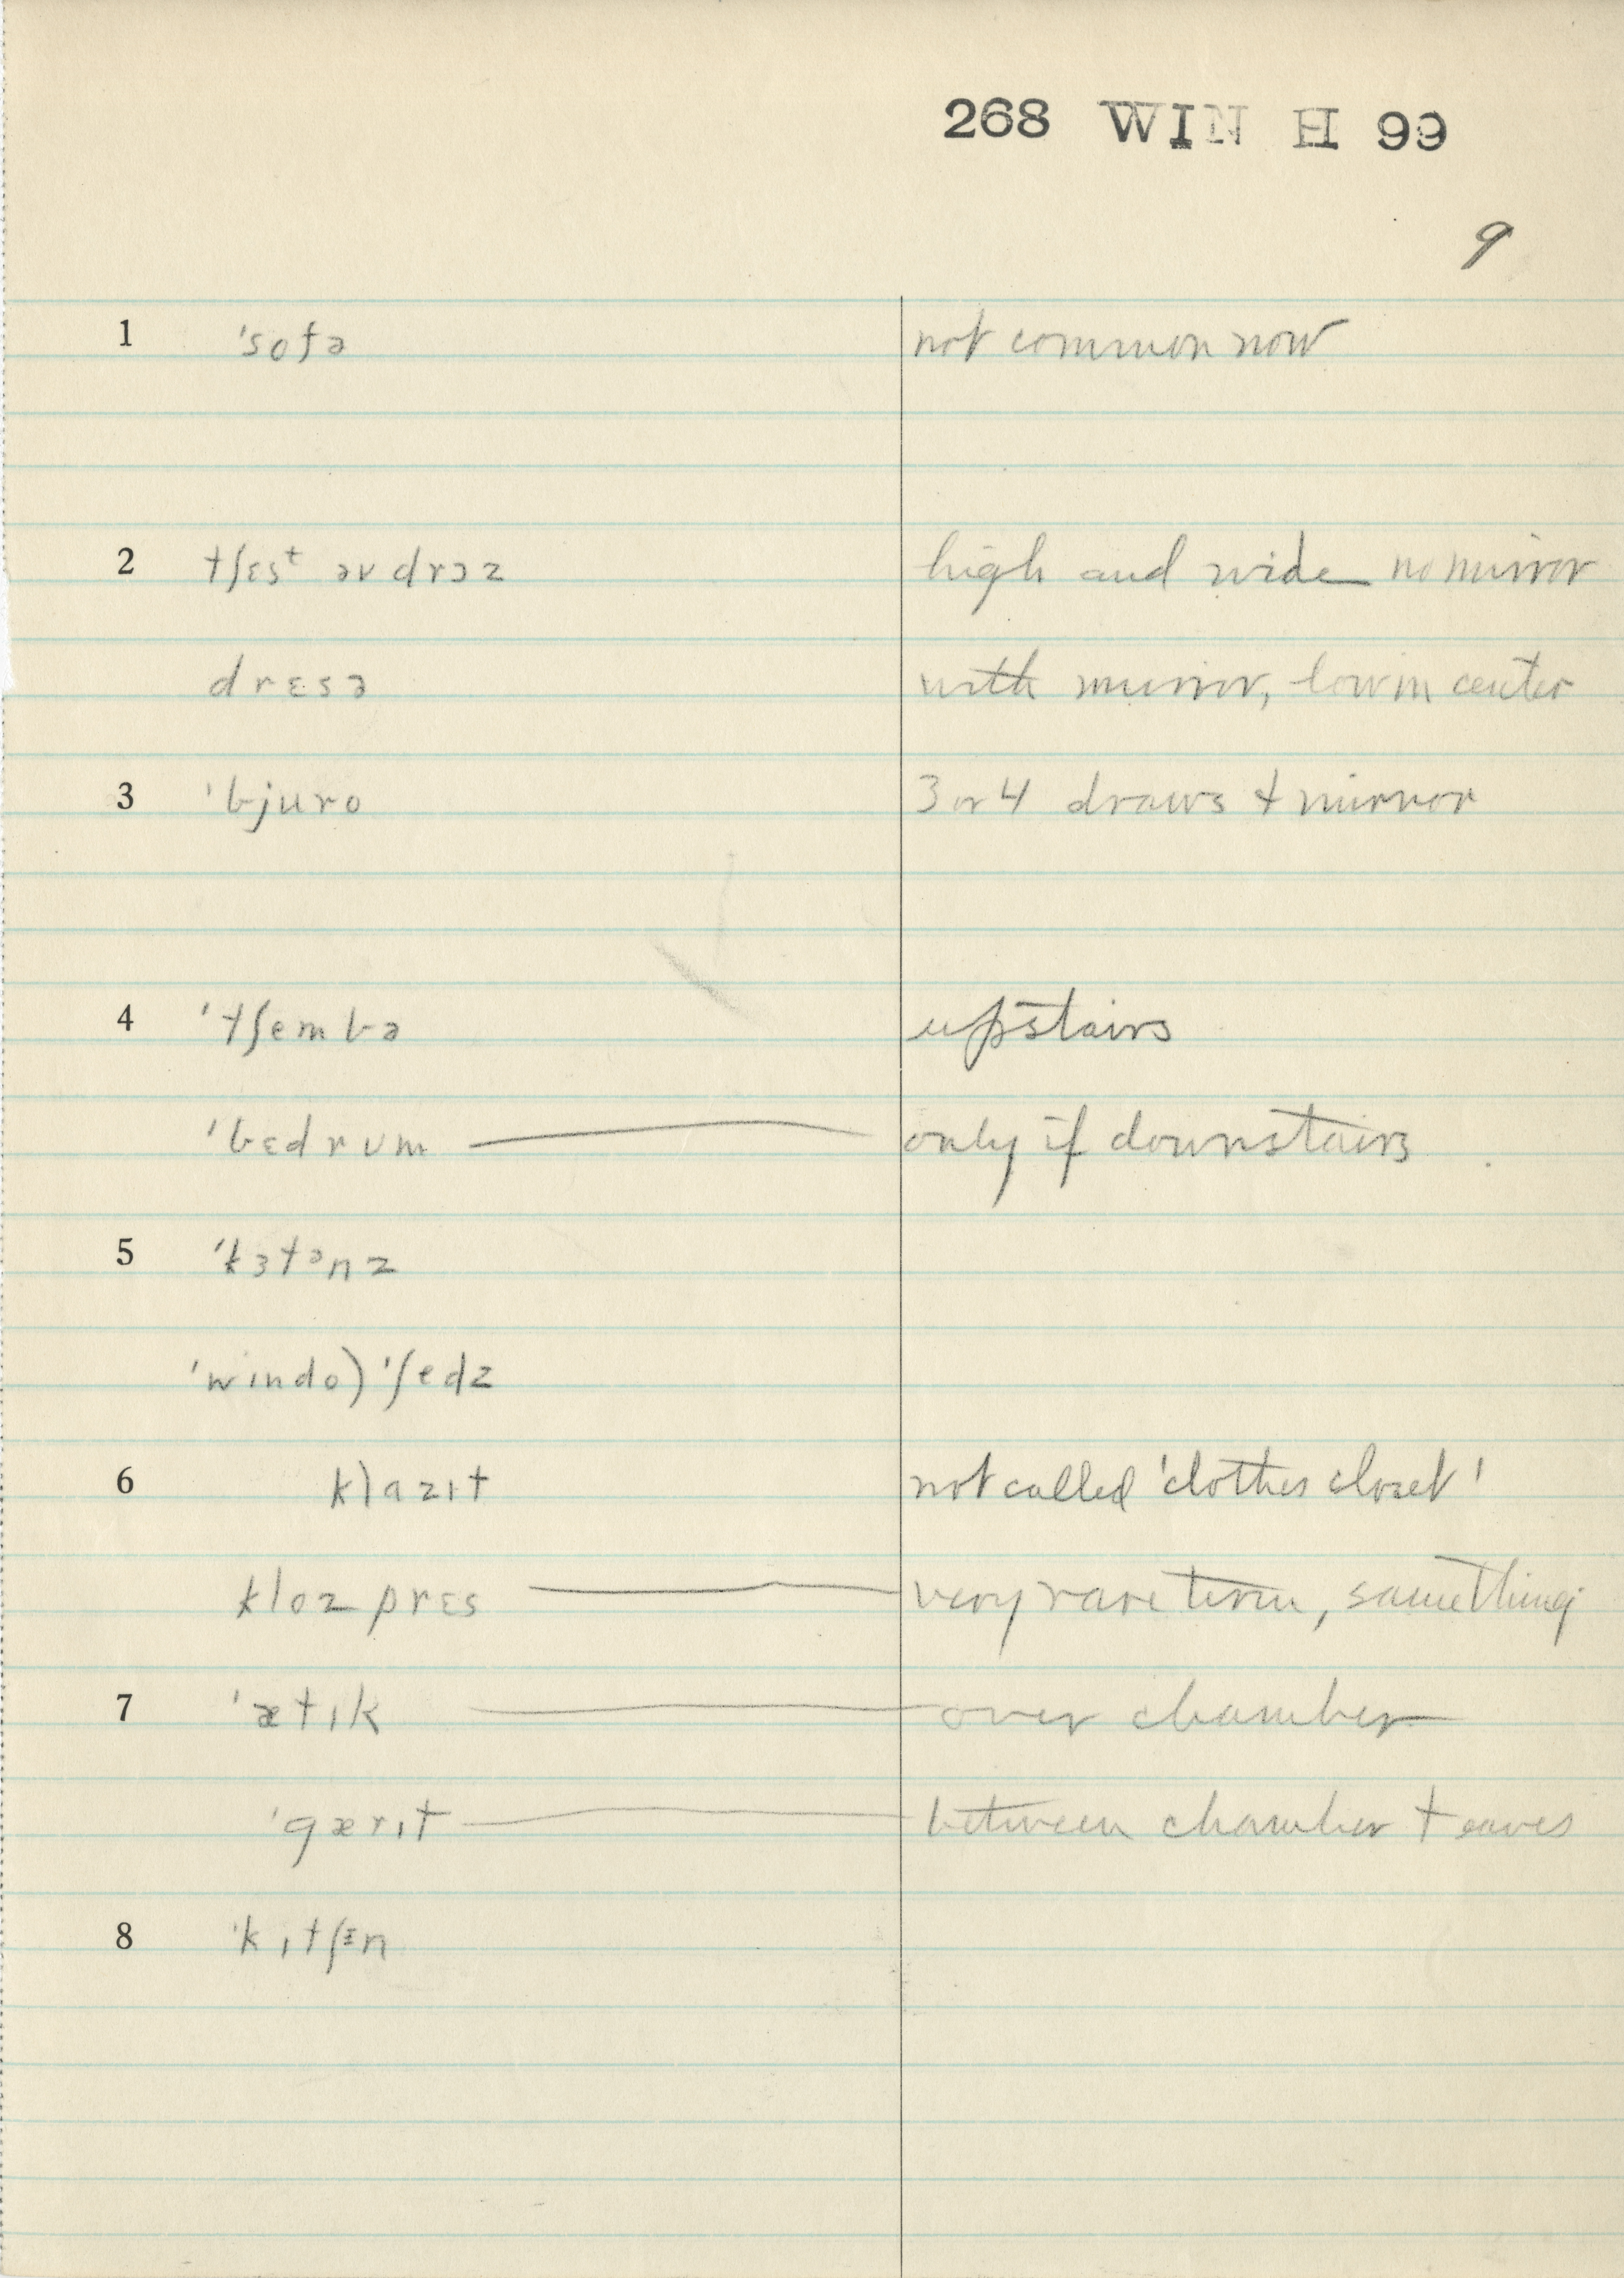 268 WIN H 99
9
1 'sofə not common now
2 tʃɛsᵗ əv drɔz high and wide no mirror
drɛsə with mirror, low in center
3 'bjuro 3 or 4 draws + mirror
4 'tʃembə upstairs
'bɛdrʊm — only if downstairs
5 'kɜtᵊnz
'wɪndo) 'ʃedz
6 klazɪt not called 'clothes closet'
kloz prɛs — very rare term, same thing
7 'ætɪk — over chamber
'gærɪt — between chamber + eaves
8 'kɪtʃᵻn